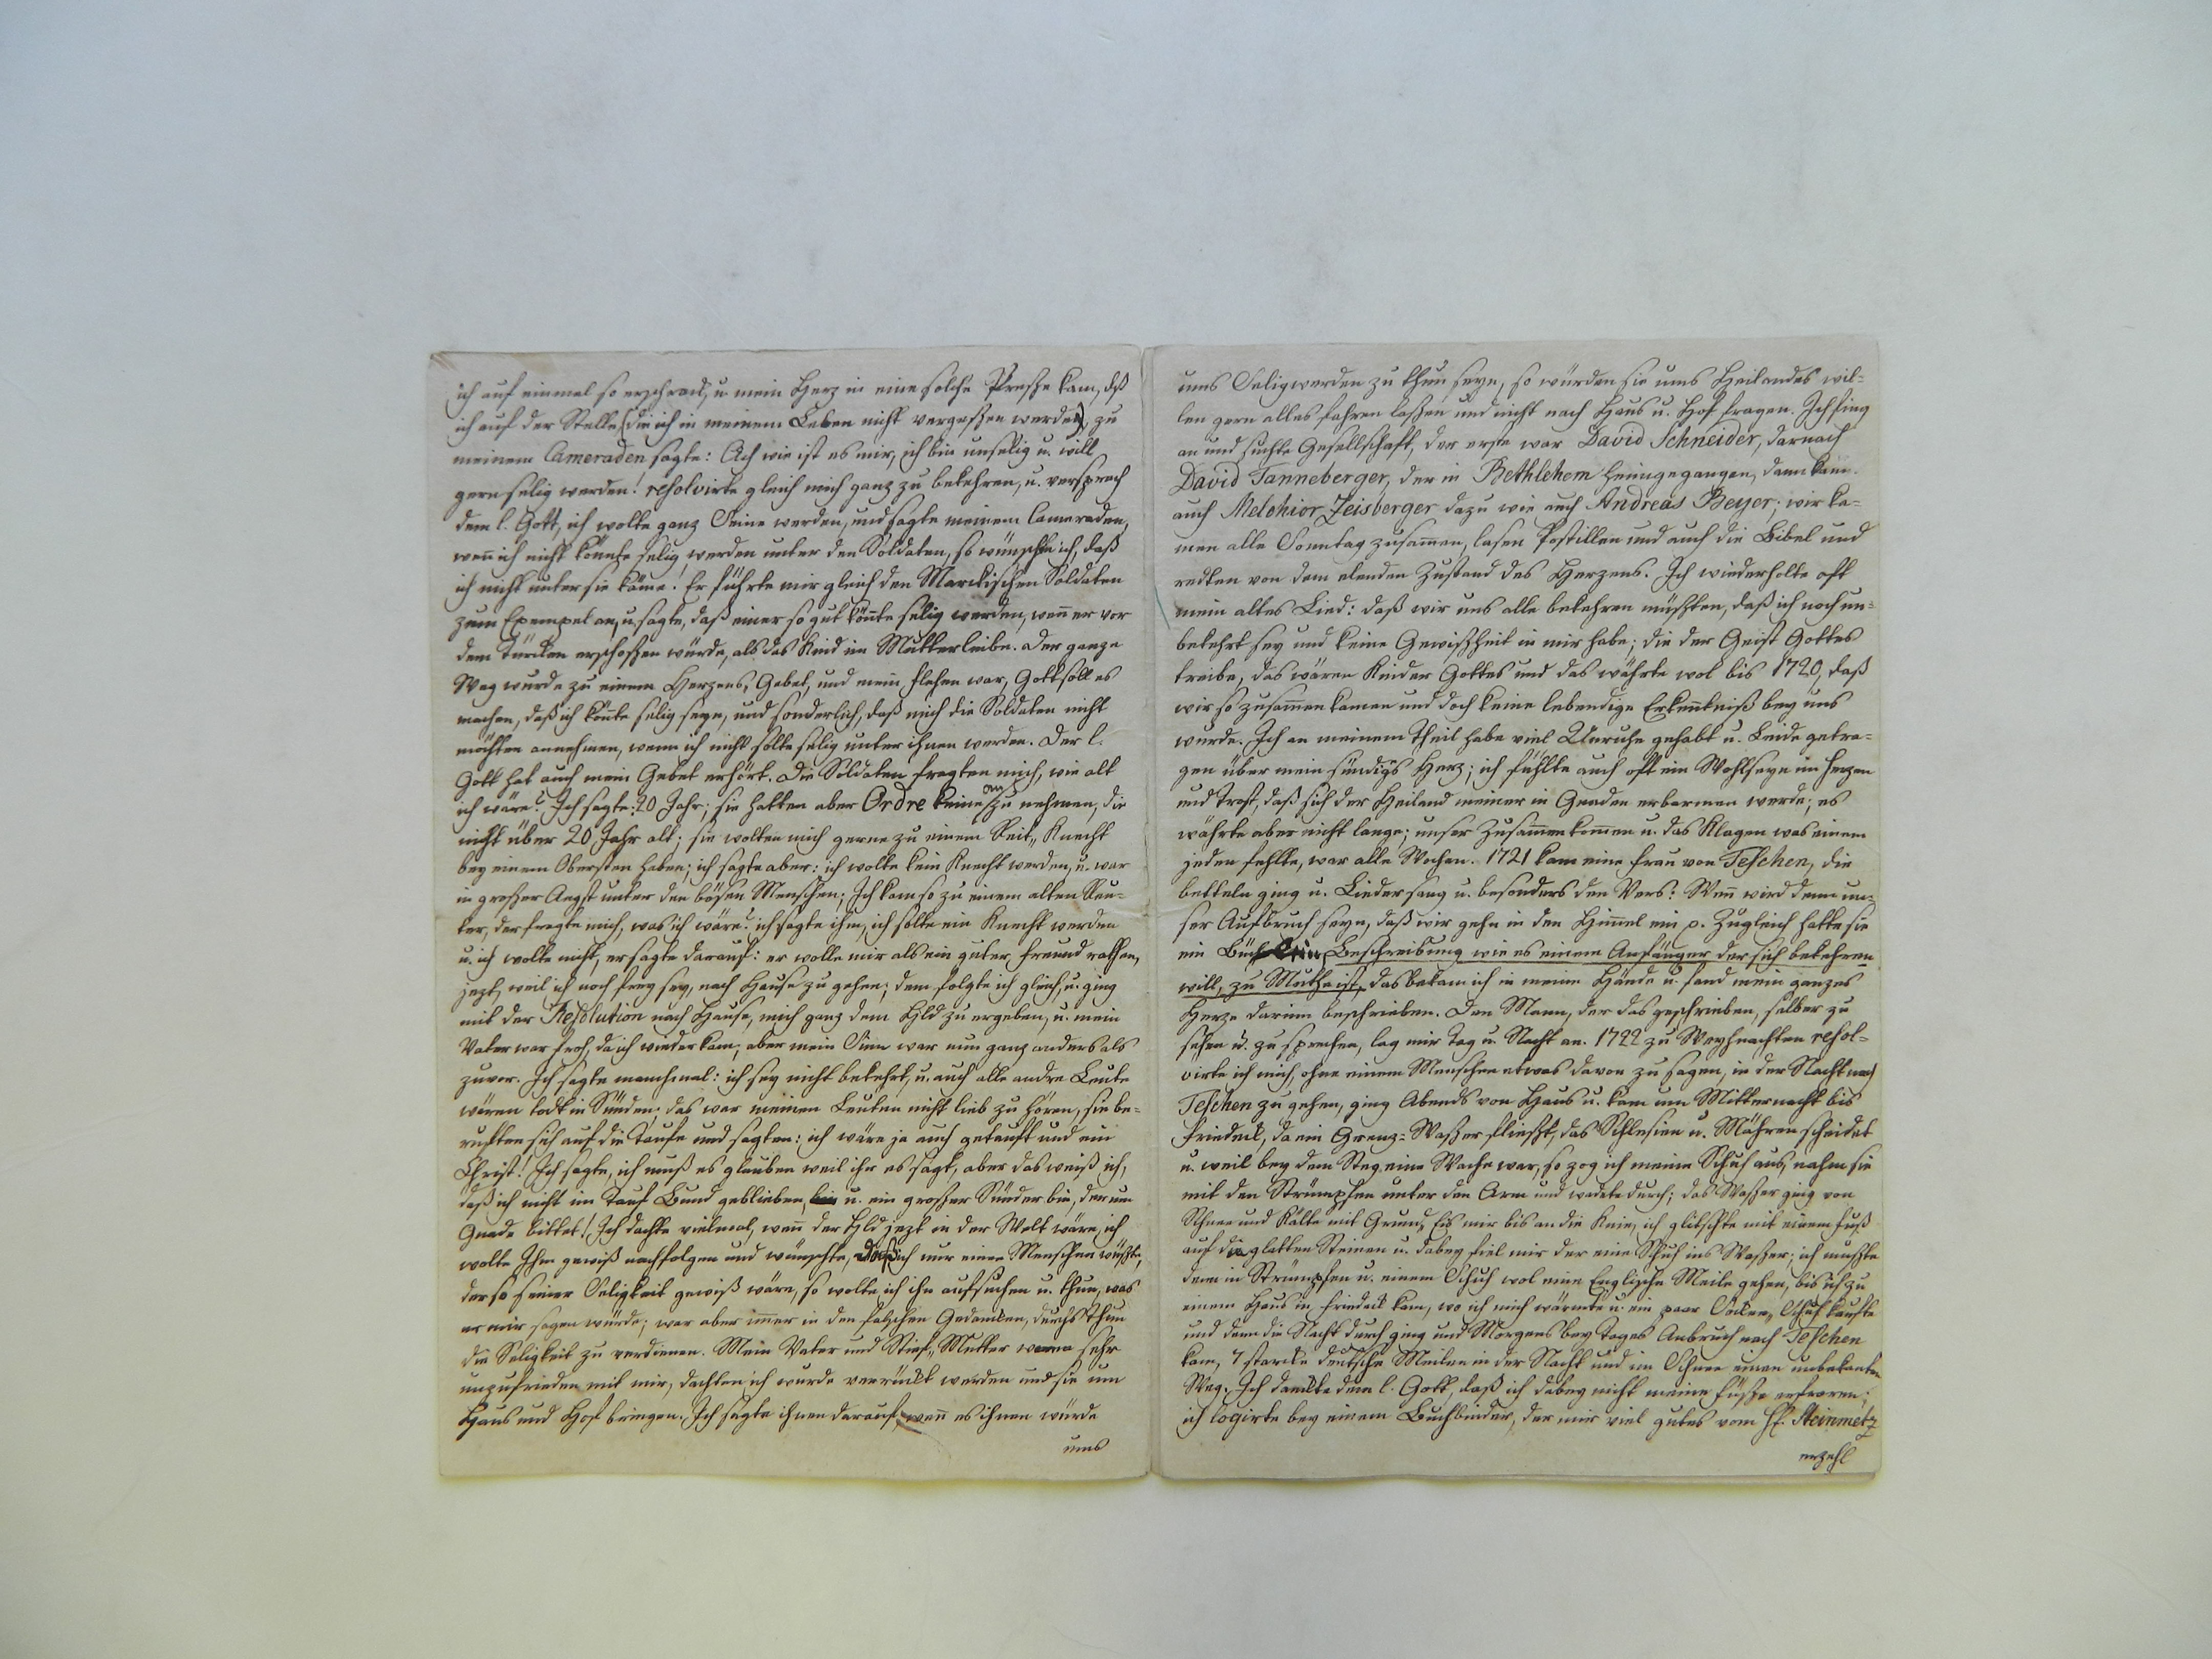 ich auf einmal so erschrack, u. mein Herz in eine solche Presse kam, dß
ich auf der Stelle, (die ich in meinem Leben nicht vergeßen werde), zu
meinem Cameraden sagte: Ach wie ist es mir, ich bin unselig u. will
gern selig werden! resolvirte gleich mich ganz zu bekehren, u. versprach
dem l. Gott, ich wolte ganz Seine werden, und sagte meinem Cameraden,
weñ ich nicht könte selig werden unter den Soldaten, so wünschte ich, daß
ich nicht unter sie käme! Er führte mir gleich den Marckischen Soldaten
zum Exempel an, u. sagte, daß einer so gut köñte selig werden, weñ er vor
dem Türcken erschoßen würde, als das Kind im Mutterleibe. Der ganze
Weg wurde zu einem Herzens, Gebet, und mein flehen war, Gott soll es
machen, daß ich köñte selig seyn, und sonderlich, daß mich die Soldaten nicht
möchten annehmen, wenn ich nicht solte selig unter ihnen werden. Der l.
Gott hat auch mein Gebet erhört. Die Soldaten fragten mich, wie alt
ich wäre? Ich sagte: 20 Jahr; sie hatten aber Ordre keine anzu nehmen, die
nicht über 20 Jahr alt; sie wolten mich gerne zu einem Reit,, Knecht
bey einem Obersten haben; ich sagte aber: ich wolte kein Knecht werden, u. war
in großer Angst unter den bösen Menschen; Ich kam so zu einem alten Reu-
ter, der fragte mich, was ich wäre? ich sagte ihm, ich solte ein Knecht werden
u. ich wolte nicht, er sagte darauf: er wolle mir als ein guter Freund rathen,
jezt, weil ich noch frey sey, nach Hause zu gehen; dem folgte ich gleich, u. ging
mit der Resolution nach Hause, mich ganz dem Hld zu ergeben, u. mein
Vater war froh, da ich wieder kam; aber mein Sinn war nun ganz anders als
zuvor. Ich sagte manchmal: ich sey nicht bekehrt, u. auch alle andre Leute
wären todt in Sünden; das war meinen Leuten nicht lieb zu hören, sie be-
ruften sich auf die Taufe und sagten: ich wäre ja auch getauft und ein
Christ! Ich sagte, ich muß es glauben weil ihr es sagt, aber das weiß ich,
daß ich nicht im Tauf Bund geblieben, u. ein großer Sünder bin, der um
Gnade bittet! Ich dachte vielmal, weñ der Hld jezt in der Welt wäre, ich
wolte Ihm gewiß nachfolgen und wünschte, daß ich nur einen Menschen wüßte,
der so seiner Seligkeit gewiß wäre, so wolte ich ihn aufsuchen u. thun, was
er mir sagen würde; war aber im̃er in den falschen Gedancken, durchs Thun
die Seligkeit zu verdienen. Mein Vater und Stief,, Mutter waren sehr
unzufrieden mit mir, dachten ich würde verrückt werden und sie um
Haus und Hof bringen. Ich sagte ihnen darauf, weñ es ihnen würde
ums
ums Seligwerden zu thun seyn, so würden sie ums Heilandes wil-
len gern alles fahren laßen und nicht nach Haus u. Hof fragen. Ich fing
an und suchte Gesellschaft, der erste war David Schneider, darnach
David Tanneberger, der in Bethlehem heimgegangen, dann kam
auch Melchior Zeisberger dazu wie auch Andreas Beyer; wir ka-
men alle Sonntag zusam̃en, lasen Postillen und auch die Bibel und
redten von dem elenden Zustand des Herzens. Ich wiederholte oft
mein altes Lied: daß wir uns alle bekehren müßten, daß ich noch un-
bekehrt sey und keine Gewißheit in mir habe; die der Geist Gottes
treibe, das wären Kinder Gottes und das währte wol bis 1720, daß
wir so zusam̃en kamen und doch keine lebendige Erkenntniß bey uns
wurde. Ich an meinem Theil habe viel Unruhe gehabt u. Leide getra-
gen über mein sündigs Herz; ich fühlte auch oft ein Wohlseyn im Herzen
und Trost, daß sich der Heiland meiner in Gnaden erbarmen werde; es
währte aber nicht lange; unser Zusam̃en kom̃en u. das Klagen was einem
jeden fehlte, war alle Wochen. 1721 kam eine Frau von Teschen, die
betteln ging u. Lieder sang u. besonders den Vers: Weñ wird denn un-
ser Aufbruch seyn, daß wir gehn in den Him̃el ein p. Zugleich hatte sie
ein Büchlein, Beschreibung wie es einem Anfänger der sich bekehren
will, zu Muthe ist, das bekam ich in meine Hände u. fand mein ganzes
Herze darinn beschrieben. Den Mann, der das geschrieben, selber zu
sehen u. zu sprechen, lag mir Tag u. Nacht an. 1722 zu Weyhnachten resol-
virte ich mich, ohne einem Menschen etwas davon zu sagen, in der Nacht nach
Teschen zu gehen, ging Abends von Haus u. kam um Mitternacht bis
Friedeck, da ein Grenz-Waßer fliesßt, das Schlesien u. Mähren scheidet
u. weil bey dem Steg eine Wache war, so zog ich meine Schuh aus, nahm sie
mit den Strümpfen unter den Arm und wadete durch; das Waßer ging von
Schnee und Kälte mit Grund, Eis mir bis an die Knie, ich glitschte mit einem Fuß
auf die glatten Steinen u. dabey fiel mir der eine Schuh ins Waßer; ich mußte
denn in Strümpfen u. einem Schuh wol eine Englische Meile gehen, bis ich zu
einem Haus in Friedeck kam, wo ich mich wärmte u. ein paar Socken,, Schuh kaufte
und denn die Nacht durch ging und Morgens bey Tages Anbruch nach Teschen
kam, 7 starcke deutsche Meilen in der Nacht und im Schnee einen unbekanten
Weg. Ich danckte dem l. Gott, daß ich dabey nicht meine Füße erfroren;
ich logirte bey einem Buchbinder, der mir viel gutes vom H. Steinmetz
erzehl